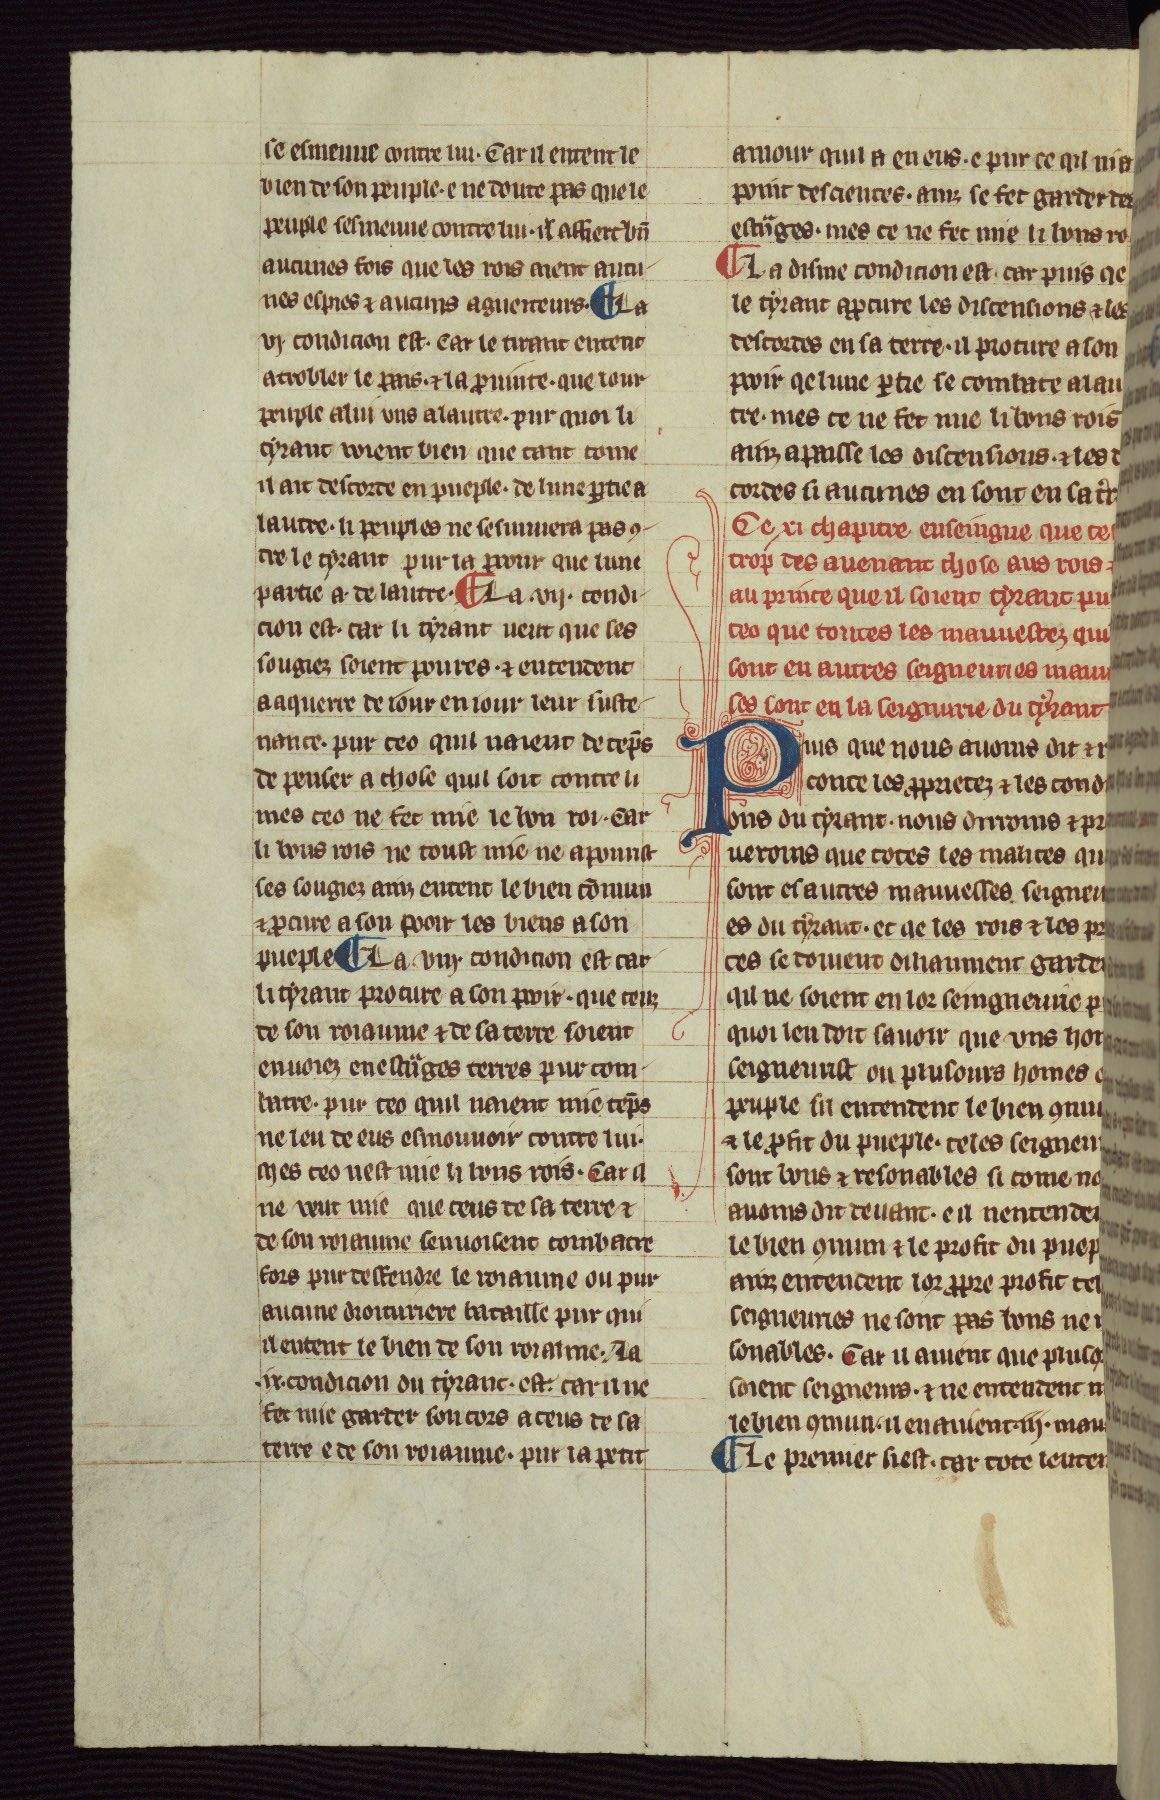 se esmeuue contre lui. Car il entent le
bien de son peuple. e ne doute pas que le
peuple sesmeuue contre lui. il affiert bn̄
aucunes fois que les rois aient aucu-
nes espies ⁊ aucuns aguerteurs. ¶ La
vj. condicion est. Car le tirant entent
a trobler le pais. ⁊ la prouince. que lour
peuple a lui vns a lautre. pur quoi li
tẏrant voient bien que tant come
il ait descorde en pueple. de lune ꝑtie a
lautre. li peuples ne sesmuuera pas ꝯ-
tre le tẏrant pur la poour que lune
partie a de lautre. ¶ La .vij. condi-
cion est. car li tẏrant ueut que ses
sougiez soient poures. ⁊ entendent
a aquerre de iour en iour leur suste-
nance. pur ceo quil naient de tēps
de penser a chose quil soit contre li
mes ceo ne fet mie le bon roi. Car
li bons rois ne toust mie ne apouurist
ses sougiez ainz entent le bien cōmun
⁊ ꝓcure a son pooir les biens a son
pueple ¶ La .viij. condicion est car
li tẏrant procure a son pooir. que ceus
de son roiaume ⁊ de sa terre soient
enuoiez en estᵃnges terres pur com-
batre. pur ceo quil naient mie tēps
ne leu de eus esmouuoir contre lui.
Mes ceo nest mie li bons rois. Car il
ne veut mie que ceus de sa terre ⁊
de son roiaume senuoisent combatre
fors pur deffendre le roiaume ou pur
aucune droituriere bataille pur qui
il entent le bien de son roialme. La
.ix. condicion du tẏrant. est. car il ne
fet mie garder son cors a ceus de sa
terre e de son roiaume. pur la petit
amour quil a en eus. e pur ce qil ni a
point descientes. ainz se fet garder des
estᵃnges. mes ce ne fet mie li bons ro
¶ La disme condicion est. car puis qe
le tẏrant ꝓcure les discensions ⁊ les
descordes en sa terre. il procure a son
pooir qe lune ꝑtie se combate a lau
tre. mes ce ne fet mie li bons rois
ainz apaisse les discensions. ⁊ les d
cordes si aucunes en sont en sa t̄re
Ce xi chapitre enseingne que ce
trop des auenant chose aus rois
au prince que il soient tẏrant pu
ceo que toutes les mauuestez qui
sont en autres seigneuries mauu
ses sont en la seignurie du tẏrant
Puis que nous auoms dit ⁊ r
conte les ꝓprietez ⁊ les cond
ons du tẏrant. nous dirroms ⁊ pr
ueroms que totes les malices qu
sont es autres mauuesses seigneu
es du tẏrant. et qe les rois ⁊ les pr
ces se doiuent diliaument garde
qil ne soient en lor seingneurie p
quoi len doit sauoir que vns hom
seigneurist ou plusours homes o
peuple sil entendent le bien ꝯmu
⁊ le ꝓfit du pueple. celes seigneu
sont bons ⁊ resonables si come no
auoms dit deuant. e il nentende
le bien ꝯmun ⁊ le profit du puep
ainz entendent lor ꝓpre profit cel
seigneuries ne sont pas bons ne r
sonables. Car il auient que pluso
soient seigneurs. ⁊ ne entendent m
le bien ꝯmun. il en auient .iij. mau
¶ Le premier si est. car tote lenten